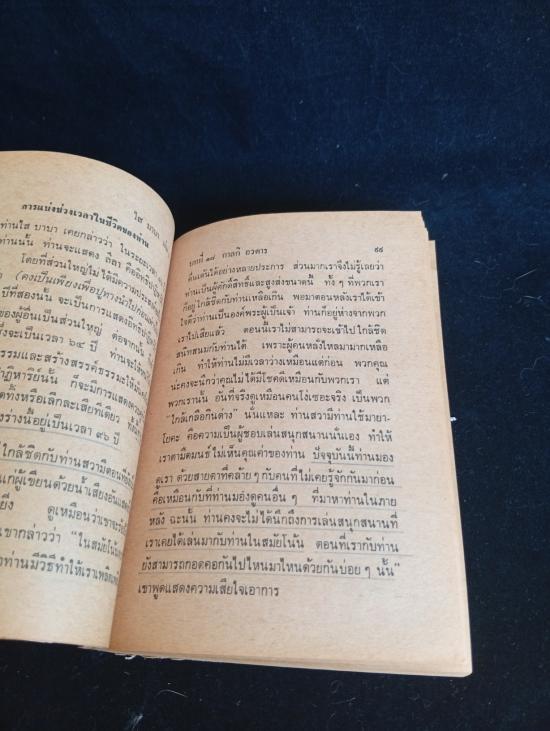 ใส บาบา
การแบ่งช่วงเวลาในชีวิตของท่าน
ท่านใส บาบา เคยกล่าวว่า ในระยะเวลา
ท่านนั้น ท่านจะแสดง ลีลา คืออิทธิ
โดยที่ส่วนใหญ่ไม่ได้มีความ
(คงเป็นเพียงเพื่อปูทางนำไปก่อน
ปีที่สองนั้น จะเป็นการแสดง
ของผู้อื่นเป็นส่วนใหญ่ ต่อจากนั้น
ซึ่งจะเป็นเวลา ๖๔ ปี ท่านจะให้
ธรรมและสร้างสรรค์ธรรมะให้
ปาฏิหารย์นั้น ก็จะมีการแสดง
ทั้งหรือเลิกละเสียทีเดียว
ร่างนี้อยู่เป็นเวลา ๙๖ ปี
ใกล้ชิดกับท่านสวามีตอนที่ยัง
แก่ผู้เขียนด้วยน้ำเสียงอัน
ดูเหมือนว่าเขาจะ
เขากล่าวว่า "ในสมัยโน้น
ท่านมีวิธีทำให้เราเพลิดเพลิน
บทที่ ๑๗ กาลกี อวตาร ๙๙
ตื่นเต้นได้อย่างหลายประการ ส่วนมากเราจึงไม่รู้เลยว่า
ท่านเป็นผู้ศักดิ์สิทธิ์และสูงส่งขนาดนี้ ทั้ง ๆ ที่พวกเรา
ก็อยู่ใกล้ชิดกับท่านเหลือเกิน พอมาตอนหลังเราได้เข้า
ใจดีว่าท่านเป็นองค์พระผู้เป็นเจ้า ท่านก็อยู่ห่างจากพวก
เราไปเสียแล้ว ตอนนี้เราไม่สามารถจะเข้าไปใกล้ชิด
สนิทสนมกับท่านได้ เพราะผู้คนหลั่งไหลมามากเหลือ
เกิน ทำให้ท่านไม่มีเวลาว่างเหมือนแต่ก่อน พวกคุณ
น่ะคงจะนึกว่าคุณไม่ได้มีโชคดีเหมือนกับพวกเรา แต่
พวกเรานั้น อันที่จริงดูเหมือนคนโง่เซอะจริง เป็นพวก
"ใกล้เกลือกินด่าง" นั่นแหละ ท่านสวามีท่านใช้มายา-
โยคะ คือความเป็นผู้ชอบเล่นสนุกสนานนั่นเอง ทำให้
เราตามืดมนซ์ไม่เห็นคุณค่าของท่าน ปัจจุบันนี้ท่านมอง
ดูเรา ด้วยสายตาที่คล้าย ๆ กับคนที่ไม่เคยรู้จักกันมาก่อน
คือเหมือนกับที่ท่านมองดูคนอื่น ๆ ที่มาหาท่านในภาย
หลัง ฉะนั้น ท่านคงจะไม่ได้นึกถึงการเล่นสนุกสนานที่
เราเคยได้เล่นมากับท่านในสมัยโน้น ตอนที่เรากับท่าน
ยังสามารถกอดคอกันไปไหนมาไหนด้วยกันบ่อย ๆ นั้น"
เขาพูดแสดงความเสียใจเอาการ